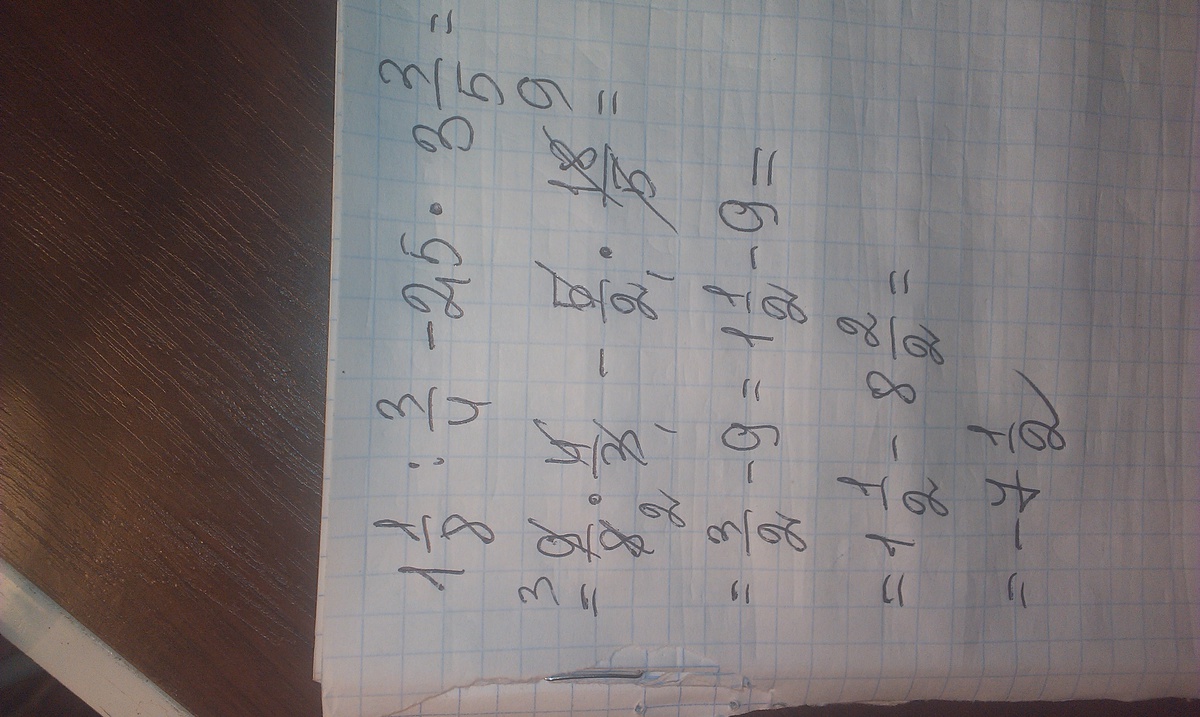 1 1/8 : 3/4 - 2,5 · 3 3/5 =
= 9/8 · 4/3 - 5/2 · 18/5 =
= 3/2 - 9 = 1 1/2 - 9 =
= 1 1/2 - 8 2/2 =
= - 7 1/2